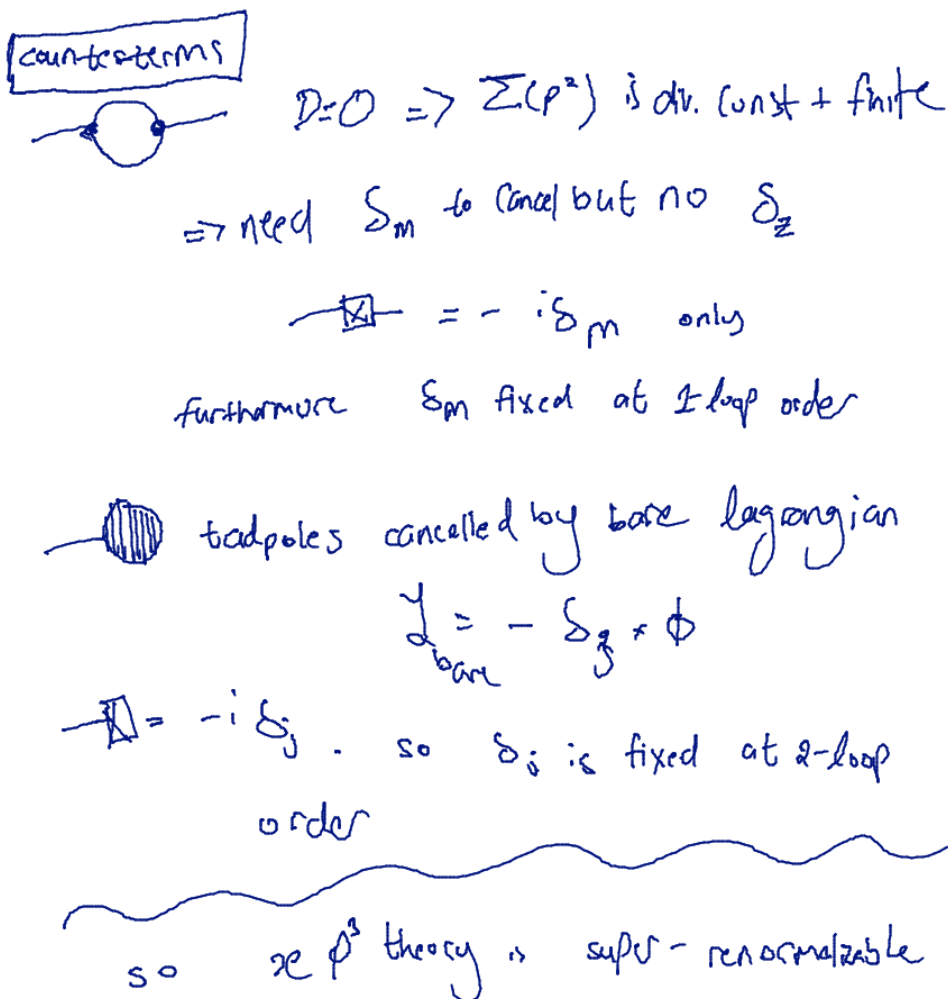 counterterms
D=0 => Σ(p²) is div. const + finite
=> need δ_m to cancel but no δ_z
= - iδ_m only
furthermore δ_m fixed at 1-loop order
tadpoles cancelled by bare lagrangian
ℒ_bare = - δ_j * ϕ
= -i δ_j . so δ_j is fixed at 2-loop
order
so ϕ³ theory is super-renormalizable